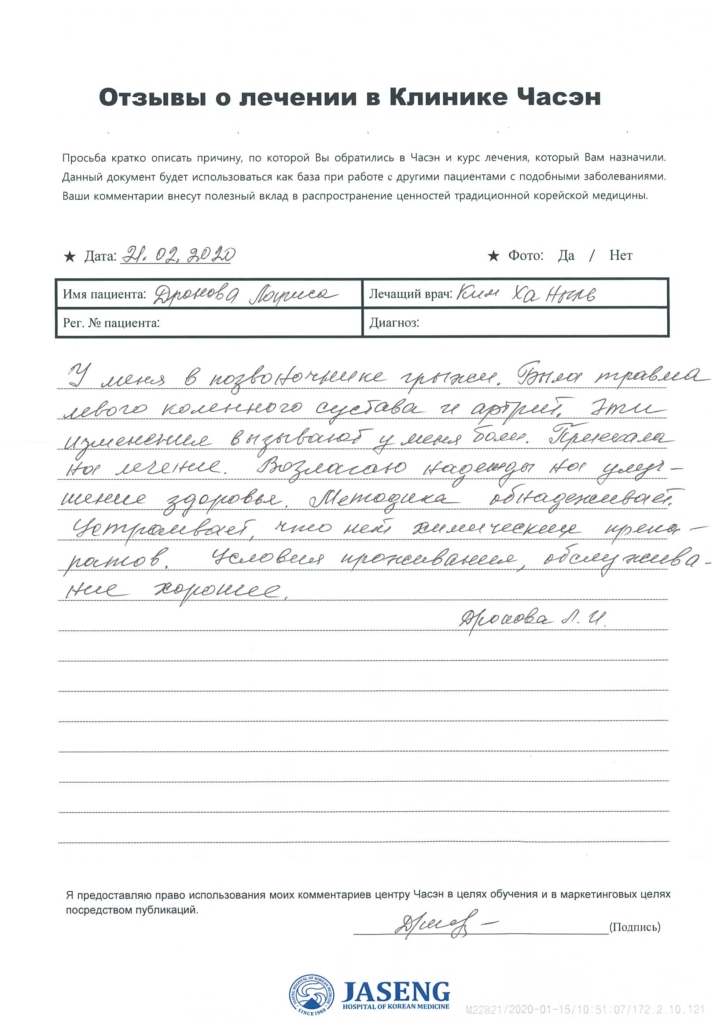 Отзывы о лечении в Клинике Часэн
Просьба кратко описать причину, по которой Вы обратились в Часэн и курс лечения, который Вам назначили.
Данный документ будет использоваться как база при работе с другими пациентами с подобными заболеваниями.
Ваши комментарии внесут полезный вклад в распространение ценностей традиционной корейской медицины.
★ Дата: 21.02.2020 ★ Фото: Да / Нет
Имя пациента: Дронова Лариса Лечащий врач: Ким Ха Ныль
Рег. № пациента: Диагноз:
У меня в позвоночнике грыжи. Была травма
левого коленного сустава и артрит. Эти
изменения вызывают у меня боли. Приехала
на лечение. Возлагаю надежды на улуч-
шение здоровья. Методика обнадеживает.
Устраивает, что нет химических препа-
ратов. Условия проживания, обслужива-
ние хорошее.
Дронова Л. И.
Я предоставляю право использования моих комментариев центру Часэн в целях обучения и в маркетинговых целях
посредством публикаций.
(Подпись)
JASENG
HOSPITAL OF KOREAN MEDICINE
JASENG HOSPITAL OF KOREAN MEDICINE
SINCE 1988
M22821/2020-01-15/10:51:07/172.2.10.121